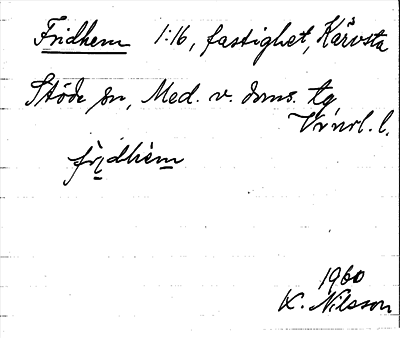 Fridhem 1:16, fastighet, Kärvsta
Stöde sn, Med. v. doms. tg,
Vnrl. l.
fri̱dhèm̱
1960
K. Nilsson